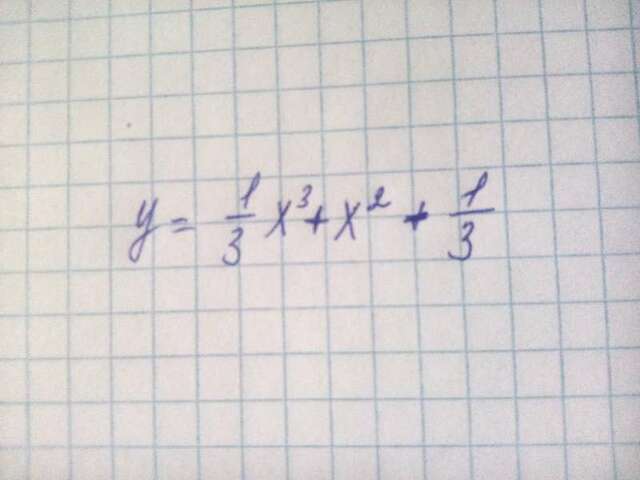 y = 1/3 x³ + x² + 1/3